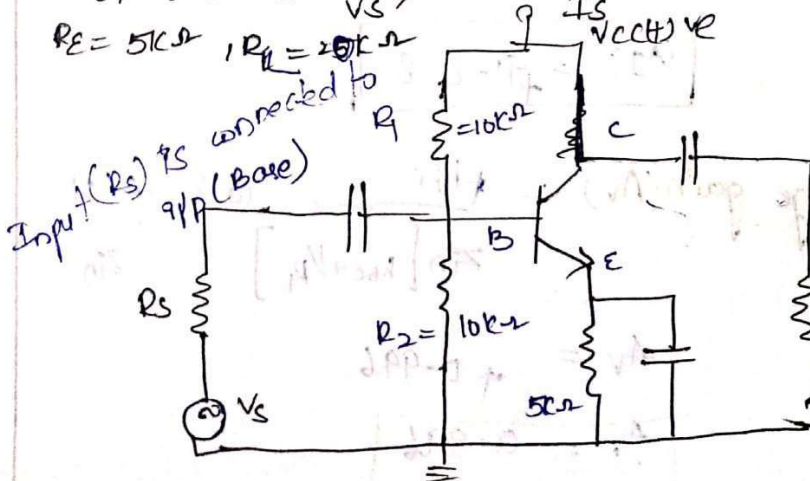 Vs
RE = 5KΩ , RL = 20KΩ
+5
VCC(+) ve
Input (Rs) is connected to
i/p (Base)
R1
=10KΩ
C
B
E
Rs
R2 = 10KΩ
5KΩ
Vs